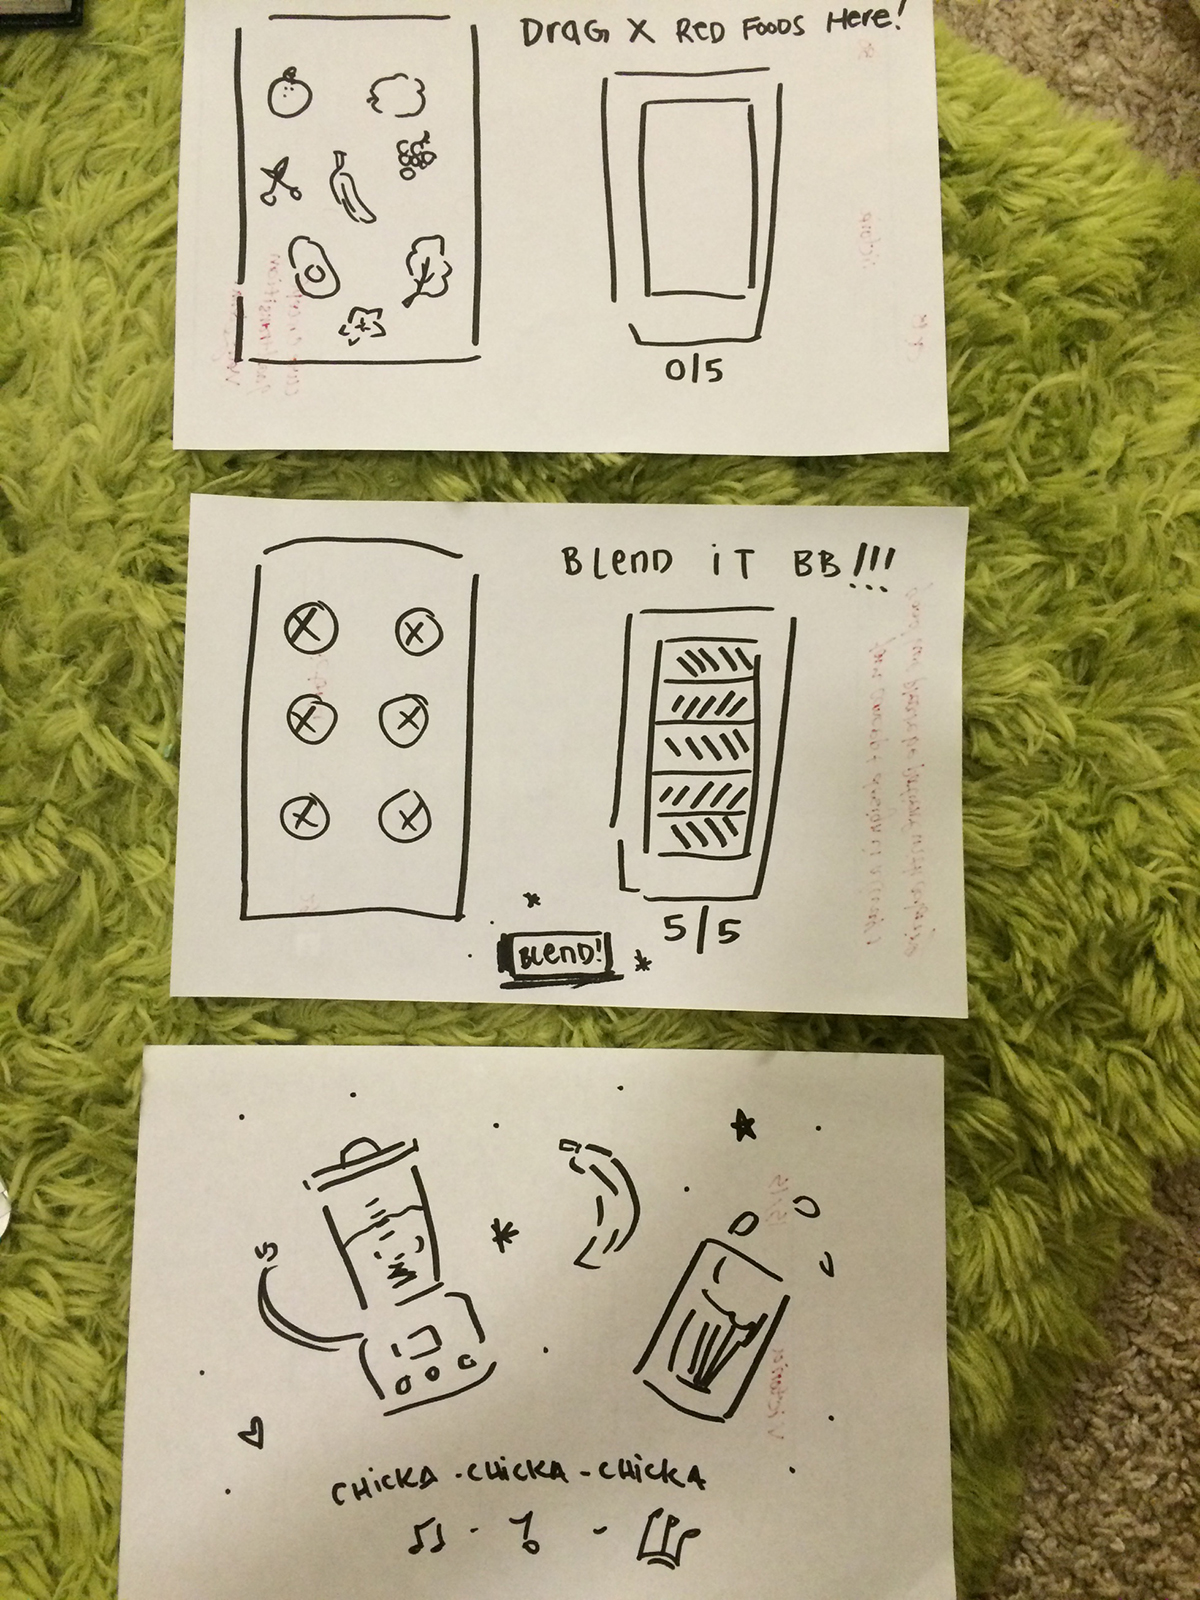 Drag X Red Foods Here!
0/5
Blend it BB!!!
5/5
Blend!
CHICKA - CHICKA - CHICKA